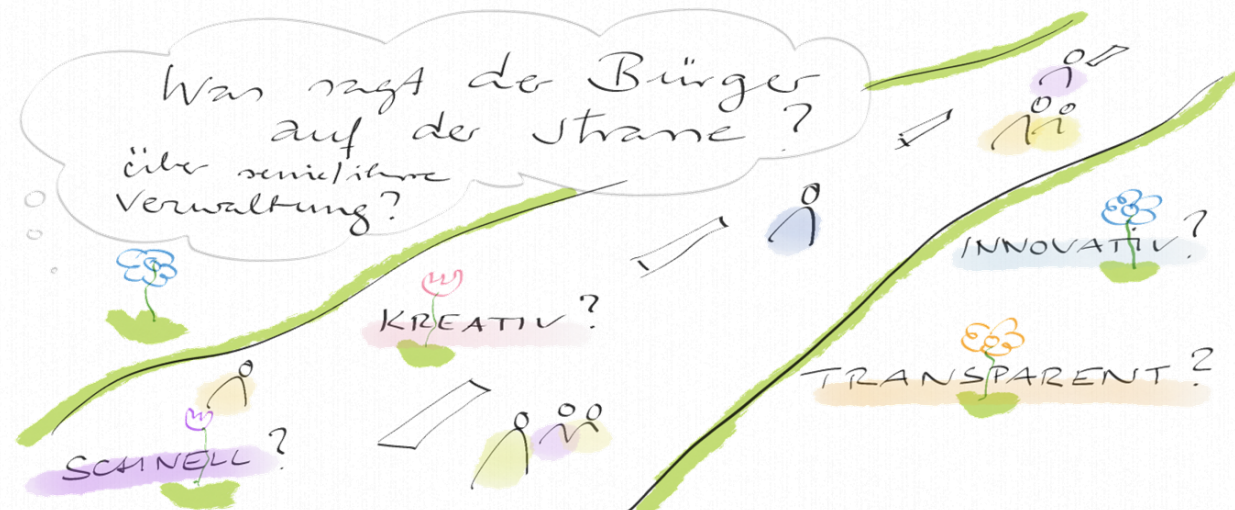 Was sagt der Bürger
auf der Strasse?
über seine/ihre
Verwaltung?
INNOVATIV?
KREATIV?
TRANSPARENT?
SCHNELL?